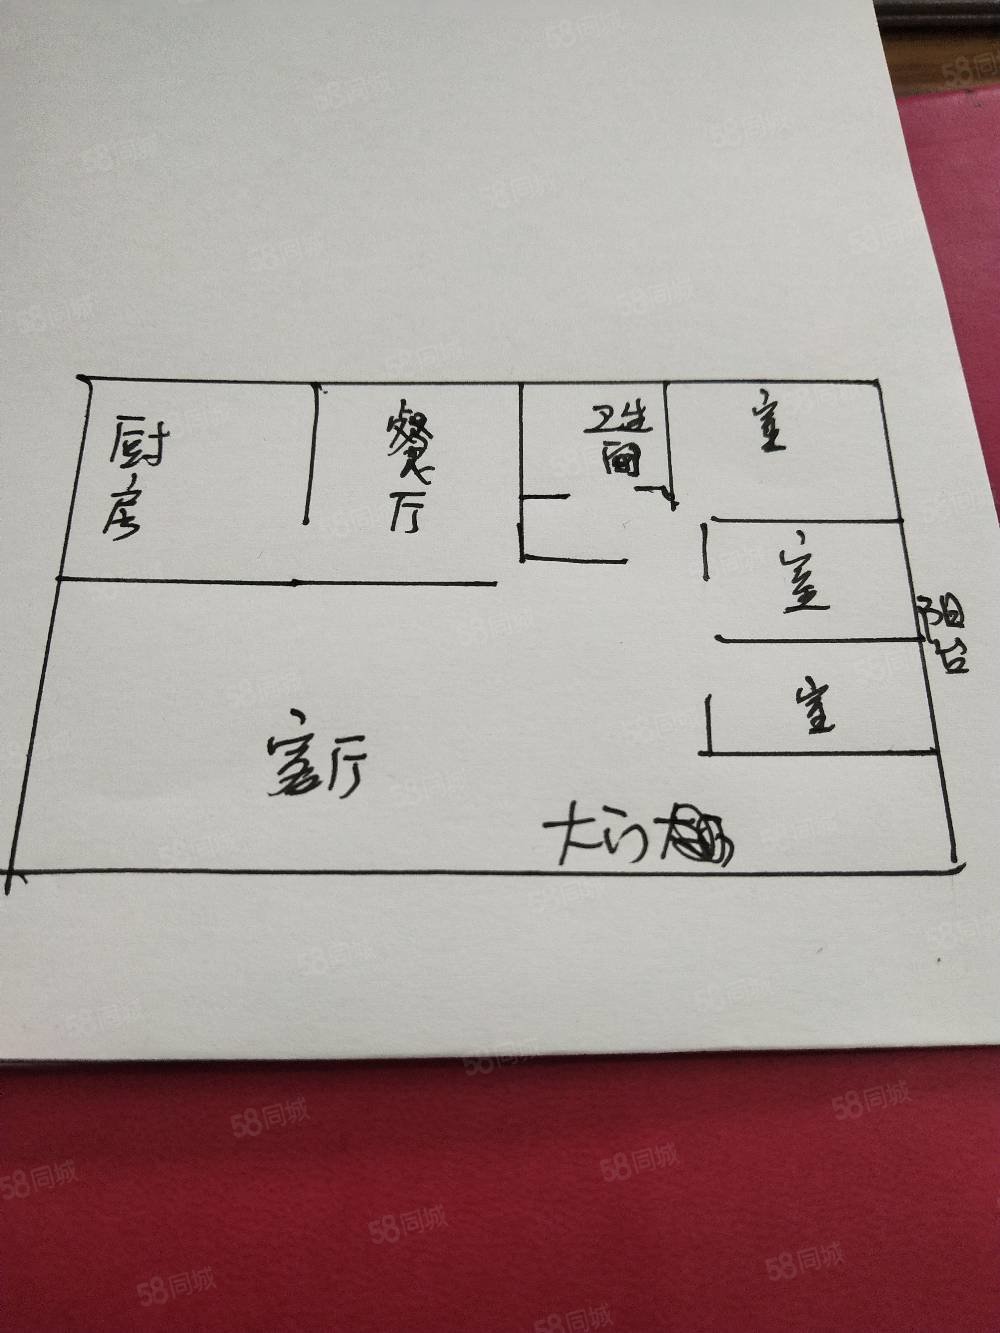 厨房
餐厅
卫生间
室
室
阳台
室
客厅
大门
58同城